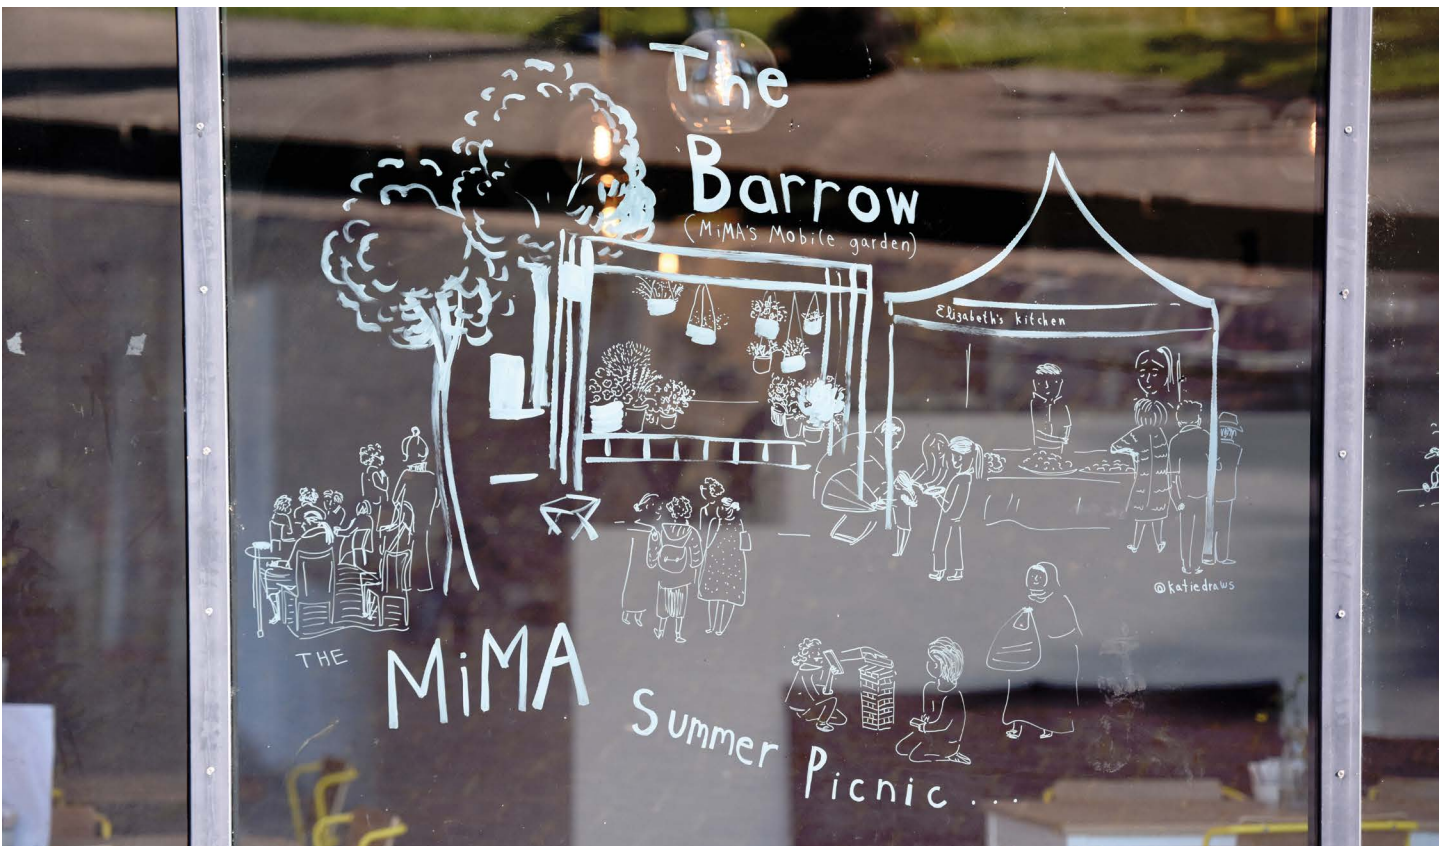 The
Barrow
(MiMA's Mobile garden)
Elizabeth's kitchen
@katiedraws
THE
MiMA
Summer
Picnic ...